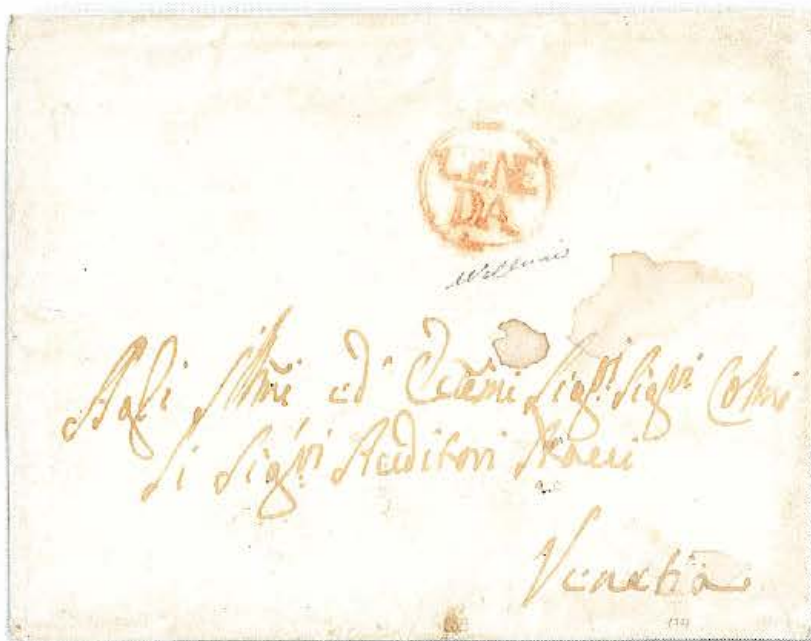 CENE
DA
Agli Ill͞mi ed Ecc͞mi Sig.ri Sig.ri
Li Sig.ri Auditori Novi
Venetia